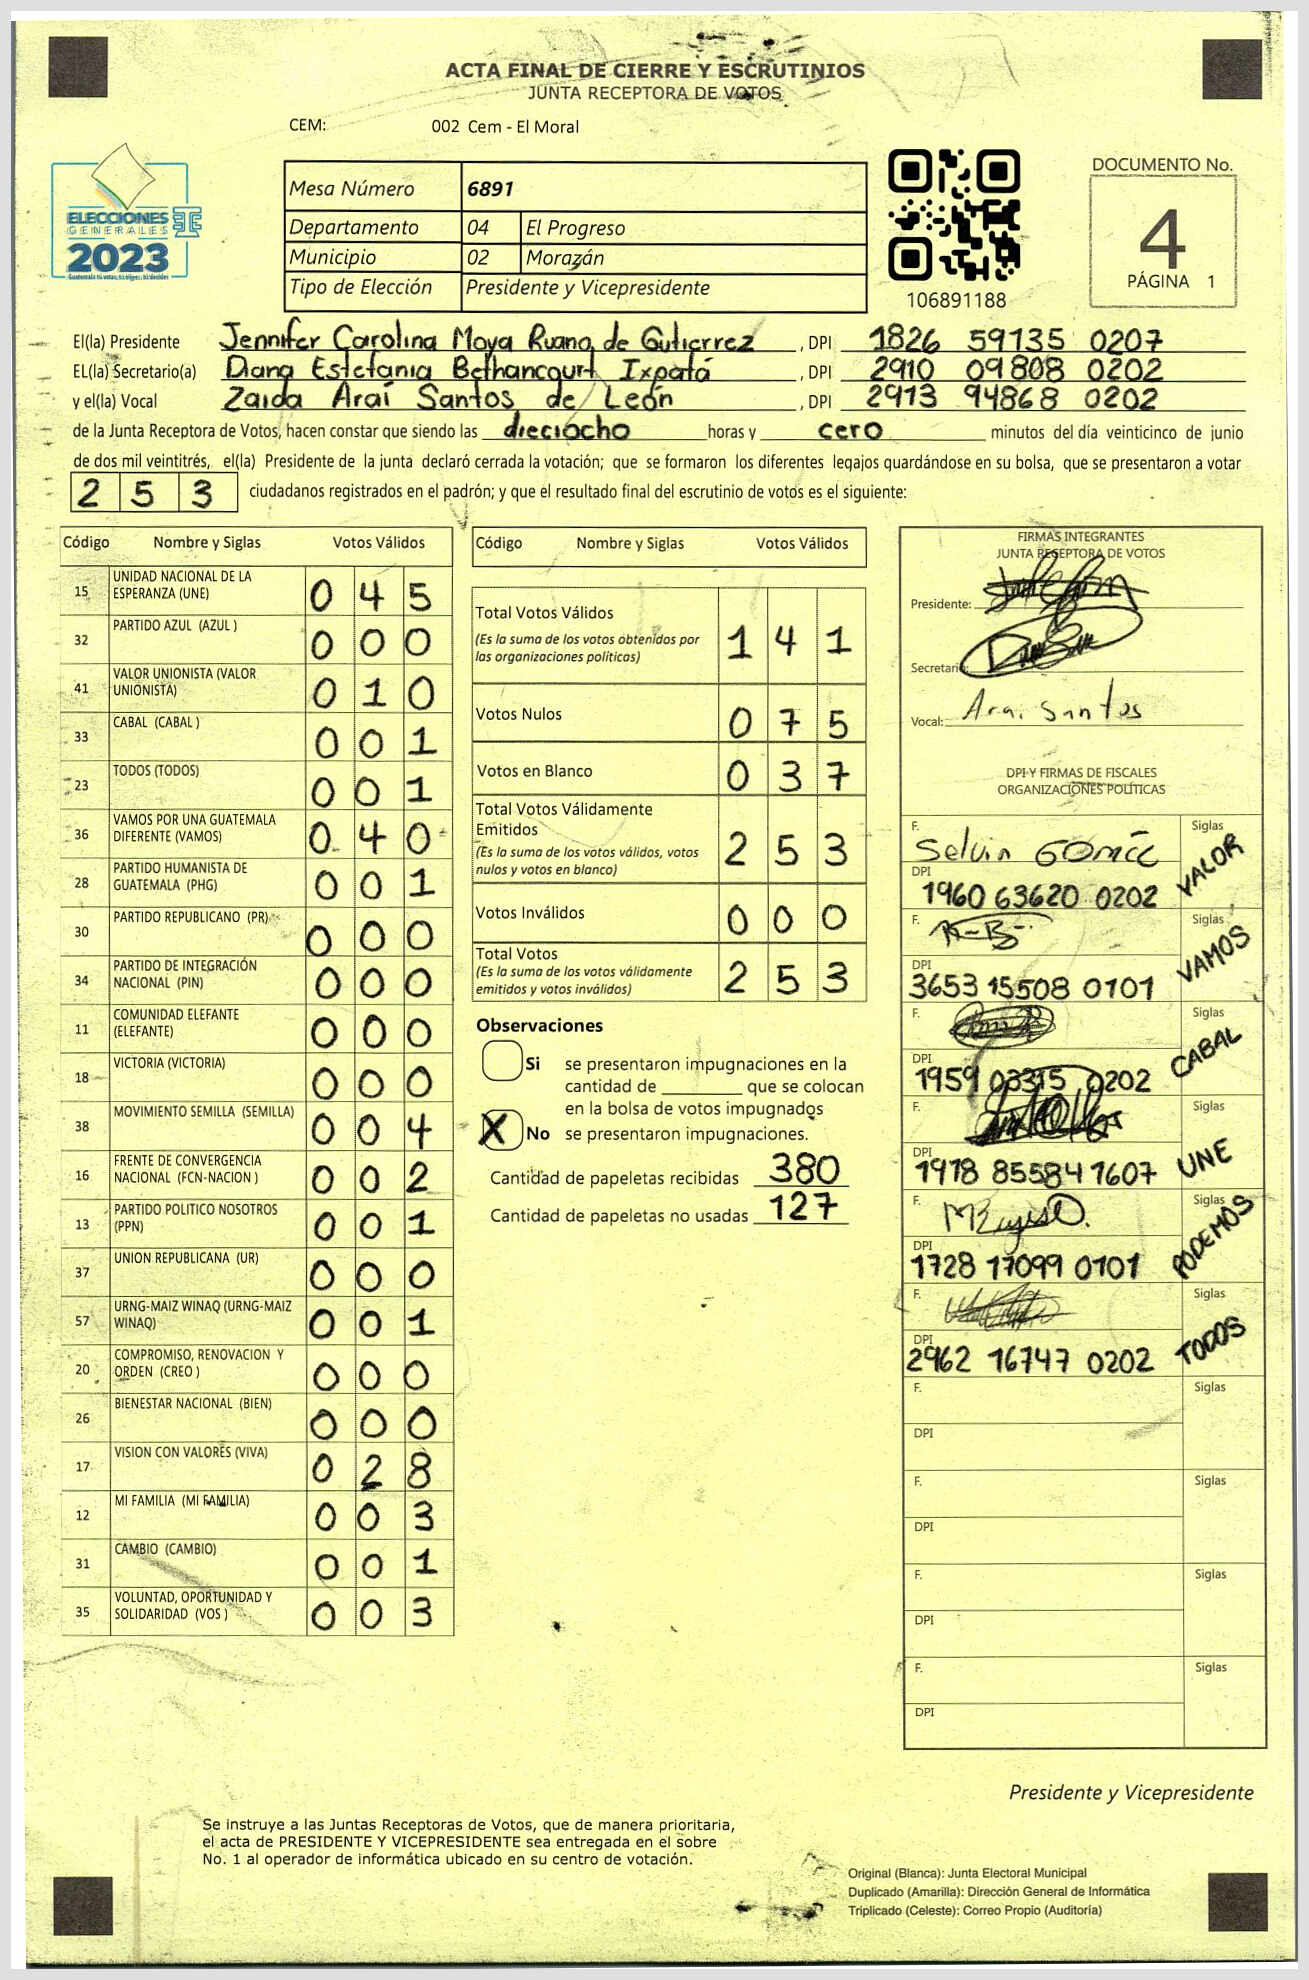 ACTA FINAL DE CIERRE Y ESCRUTINIOS
JUNTA RECEPTORA DE VOTOS
CEM: 002 Cem - El Moral
ELECCIONES
GENERALES
2023
Mesa Número 6891
Departamento 04 El Progreso
Municipio 02 Morazán
Tipo de Elección Presidente y Vicepresidente
106891188
DOCUMENTO No.
4
PÁGINA 1
El(la) Presidente Jennifer Carolina Moya Ruano de Gutierrez , DPI 1826 59135 0207
EL(la) Secretario(a) Diana Estefania Bethancourt Ixpatá , DPI 2910 09808 0202
y el(la) Vocal Zaida Araí Santos de León , DPI 2913 94868 0202
de la Junta Receptora de Votos, hacen constar que siendo las dieciocho horas y cero minutos del día veinticinco de junio
de dos mil veintitrés, el(la) Presidente de la junta declaró cerrada la votación; que se formaron los diferentes legajos quardándose en su bolsa, que se presentaron a votar
2 5 3 ciudadanos registrados en el padrón; y que el resultado final del escrutinio de votos es el siguiente:
Código Nombre y Siglas Votos Válidos
15 UNIDAD NACIONAL DE LA ESPERANZA (UNE) 0 4 5
32 PARTIDO AZUL (AZUL ) 0 0 0
41 VALOR UNIONISTA (VALOR UNIONISTA) 0 1 0
33 CABAL (CABAL ) 0 0 1
23 TODOS (TODOS) 0 0 1
36 VAMOS POR UNA GUATEMALA DIFERENTE (VAMOS) 0 4 0
28 PARTIDO HUMANISTA DE GUATEMALA (PHG) 0 0 1
30 PARTIDO REPUBLICANO (PR) 0 0 0
34 PARTIDO DE INTEGRACIÓN NACIONAL (PIN) 0 0 0
11 COMUNIDAD ELEFANTE (ELEFANTE) 0 0 0
18 VICTORIA (VICTORIA) 0 0 0
38 MOVIMIENTO SEMILLA (SEMILLA) 0 0 4
16 FRENTE DE CONVERGENCIA NACIONAL (FCN-NACION ) 0 0 2
13 PARTIDO POLITICO NOSOTROS (PPN) 0 0 1
37 UNION REPUBLICANA (UR) 0 0 0
57 URNG-MAIZ WINAQ (URNG-MAIZ WINAQ) 0 0 1
20 COMPROMISO, RENOVACION Y ORDEN (CREO ) 0 0 0
26 BIENESTAR NACIONAL (BIEN) 0 0 0
17 VISION CON VALORES (VIVA) 0 2 8
12 MI FAMILIA (MI FAMILIA) 0 0 3
31 CAMBIO (CAMBIO) 0 0 1
35 VOLUNTAD, OPORTUNIDAD Y SOLIDARIDAD (VOS ) 0 0 3
Código Nombre y Siglas Votos Válidos
Total Votos Válidos 1 4 1
(Es la suma de los votos obtenidos por
las organizaciones políticas)
Votos Nulos 0 7 5
Votos en Blanco 0 3 7
Total Votos Válidamente
Emitidos 2 5 3
(Es la suma de los votos válidos, votos
nulos y votos en blanco)
Votos Inválidos 0 0 0
Total Votos 2 5 3
(Es la suma de los votos válidamente
emitidos y votos inválidos)
Observaciones
Si se presentaron impugnaciones en la
cantidad de ________ que se colocan
en la bolsa de votos impugnados
X No se presentaron impugnaciones.
Cantidad de papeletas recibidas 380
Cantidad de papeletas no usadas 127
FIRMAS INTEGRANTES
JUNTA RECEPTORA DE VOTOS
Presidente:
Secretario:
Vocal: Araí Santos
DPI Y FIRMAS DE FISCALES
ORGANIZACIONES POLÍTICAS
F. Selvin Siglas VALOR
DPI 1960 63620 0202
F. Siglas VAMOS
DPI 3653 15508 0101
F. Siglas CABAL
DPI 1959 03315 0202
F. Siglas UNE
DPI 1978 85584 1607
F. Siglas PODEMOS
DPI 1728 17099 0101
F. Siglas TODOS
DPI 2962 16747 0202
F. Siglas
DPI
F. Siglas
DPI
F. Siglas
DPI
F. Siglas
DPI
Presidente y Vicepresidente
Se instruye a las Juntas Receptoras de Votos, que de manera prioritaria,
el acta de PRESIDENTE Y VICEPRESIDENTE sea entregada en el sobre
No. 1 al operador de informática ubicado en su centro de votación.
Original (Blanca): Junta Electoral Municipal
Duplicado (Amarilla): Dirección General de Informática
Triplicado (Celeste): Correo Propio (Auditoría)